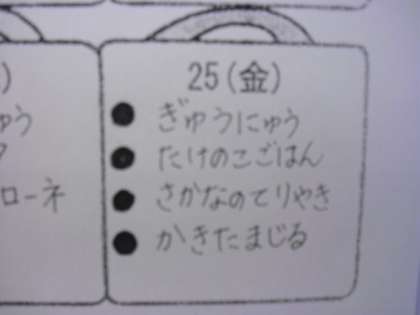 25(金)
ぎゅうにゅう
たけのこごはん
さかなのてりやき
かきたまじる
)
ゅう
ローネ